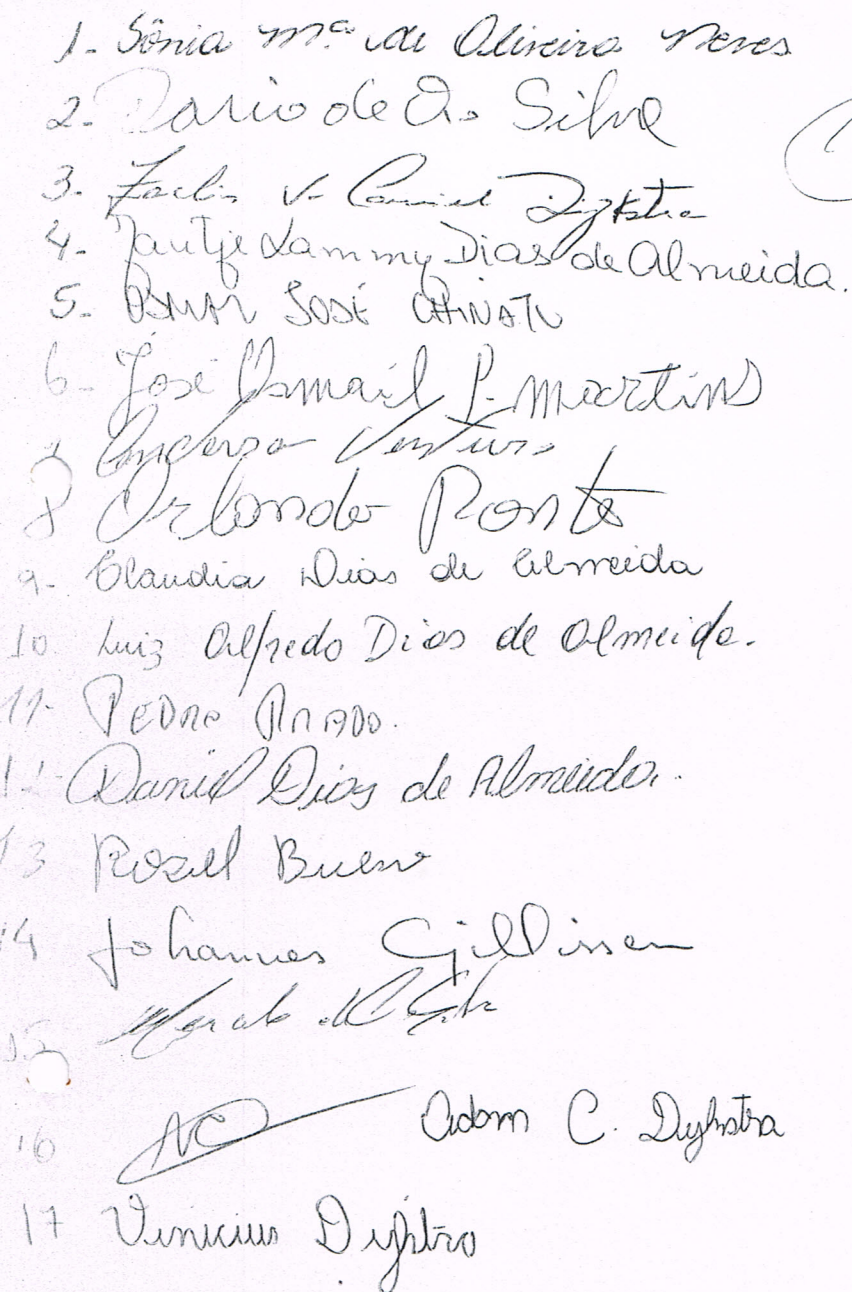 1- Sônia Mª de Oliveira Neves
2- Dario de O. Silva
3. V. Dijkstra
4- Jantje Lammy Dias de Almeida.
5- JOSÉ
6- José Osmail P. Martins
Anderson Ventura
8 Orlando Ponte
9- Claudia Dias de Almeida
10 Luiz Alfredo Dias de Almeida.
11- PEDRO PRADO.
12- Daniel Dias de Almeida.
13 Rozell Bueno
14 Johannes Gillissen
15
16 Adam C. Dykstra
17 Vinicius Dijkstra